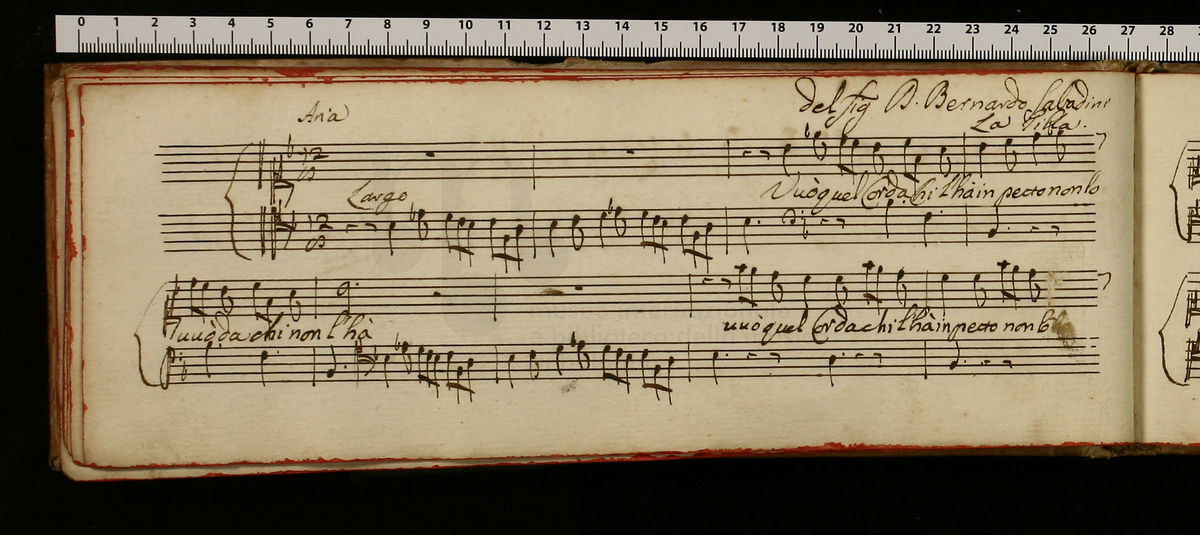 0 1 2 3 4 5 6 7 8 9 10 11 12 13 14 15 16 17 18 19 20 21 22 23 24 25 26 27 28
Aria
del Sig B. Bernardo Sabadini
La
Largo
Vuò quel Cor da chi l'hà in pecto non lo
vuò da chi non l'hà
vuò quel Cor da chi l'hà in pecto non lo